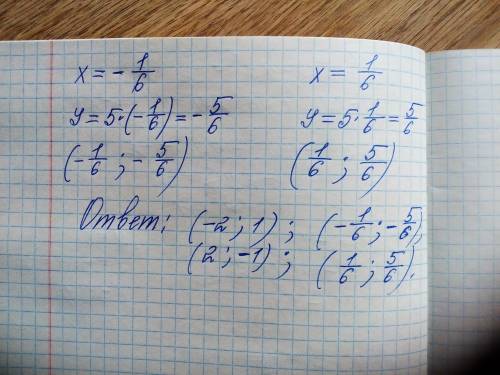 x = - 1/6    x = 1/6
y = 5·(-1/6) = - 5/6    y = 5·1/6 = 5/6
(-1/6 ; - 5/6)    (1/6 ; 5/6)
Ответ: (-2; 1); (-1/6; -5/6);
(2; -1); (1/6; 5/6).